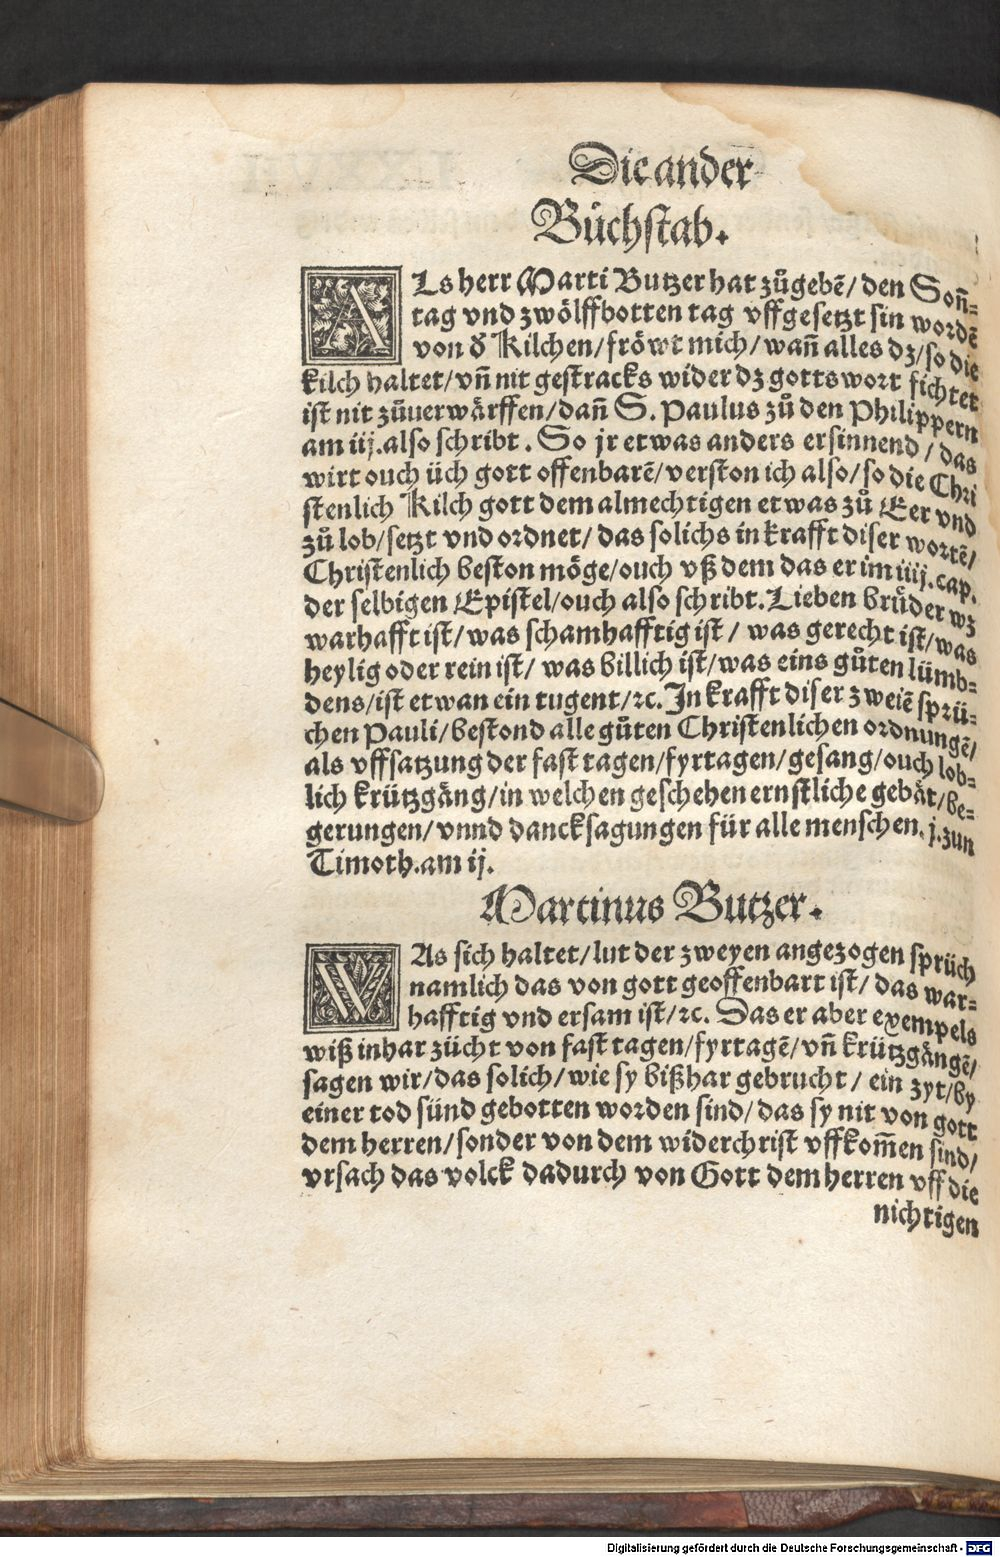 Die ander
Bůchstab.
ALs herr Marti Butzer hat zůgebē/ den Soñ⸗
tag vnd zwölffbotten tag vffgesetzt sin wordē
von d̄ Kilchen/ fröwt mich/ wañ alles dz/ so die
kilch haltet/ vñ nit gestracks wider dz gotts wort fichtet
ist nit zůuerwärffen/ dañ S. Paulus zů den Philippern
am iij. also schribt. So jr etwas anders ersinnend/ das
wirt ouch üch gott offenbarē/ verston ich also/ so die Chri
stenlich Kilch gott dem almechtigen etwas zů Eer vnd
zů lob/ setzt vnd ordnet/ das solichs in krafft diser wortē/
Christenlich beston möge/ ouch vß dem das er im iiij. cap.
der selbigen Epistel/ ouch also schribt. Lieben brůder wz
warhafft ist/ was schamhafftig ist/ was gerecht ist/ was
heylig oder rein ist/ was billich ist/ was eins gůten lümb⸗
dens/ ist etwan ein tugent/ ꝛc. In krafft diser zweiē sprü⸗
chen Pauli/ bestond alle gůten Christenlichen ordnungē/
als vffsatzung der fast tagen/ fyrtagen/ gesang/ ouch lob⸗
lich krützgäng/ in welchen geschehen ernstliche gebät/ be⸗
gerungen/ vnnd dancksagungen für alle menschen. j. zun
Timoth. am ij.
Martinus Butzer.
WAs sich haltet/ lut der zweyen angezogen sprüch
namlich das von gott geoffenbart ist/ das war⸗
hafftig vnd ersam ist/ ꝛc. Das er aber exempels
wiß inhar zücht von fast tagen/ fyrtagē/ vñ krützgängē/
sagen wir/ das solich/ wie sy bißhar gebrucht/ ein zyt/ by
einer tod sünd gebotten worden sind/ das sy nit von gott
dem herren/ sonder von dem widerchrist vffkom̄en sind/
vrsach das volck dadurch von Gott dem herren vff die
nichtigen
Digitalisierung gefördert durch die Deutsche Forschungsgemeinschaft - DFG